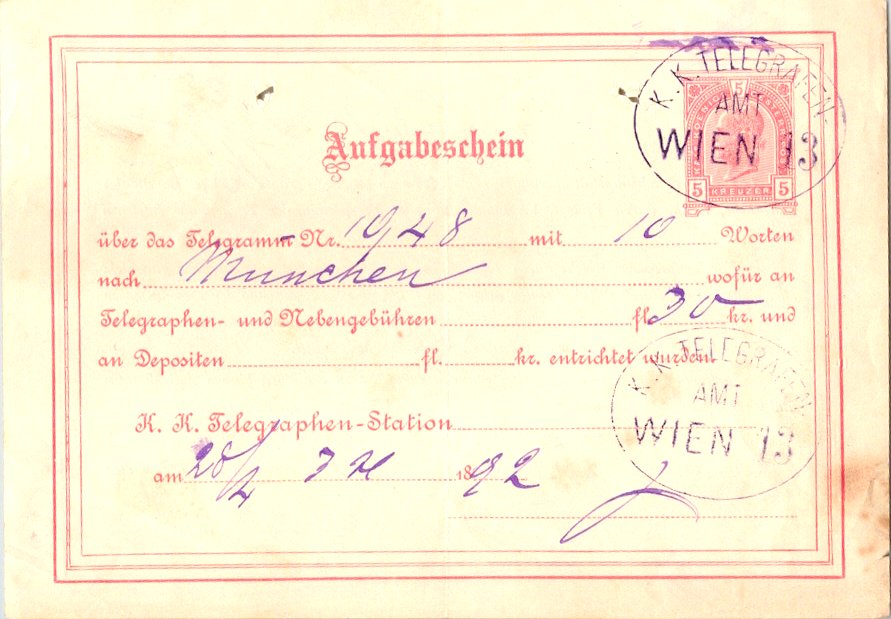 K. K. TELEGRAFEN-
AMT
WIEN 13
5
5 KREUZER 5
Aufgabeschein
über das Telegramm Nr. 1948 mit 10 Worten
nach München wofür an
Telegraphen- und Nebengebühren fl. 30 kr. und
an Depositen fl. kr. entrichtet wurden.
K. K. TELEGRAFEN-
AMT
WIEN 13
K. K. Telegraphen-Station
am 28/4 1892